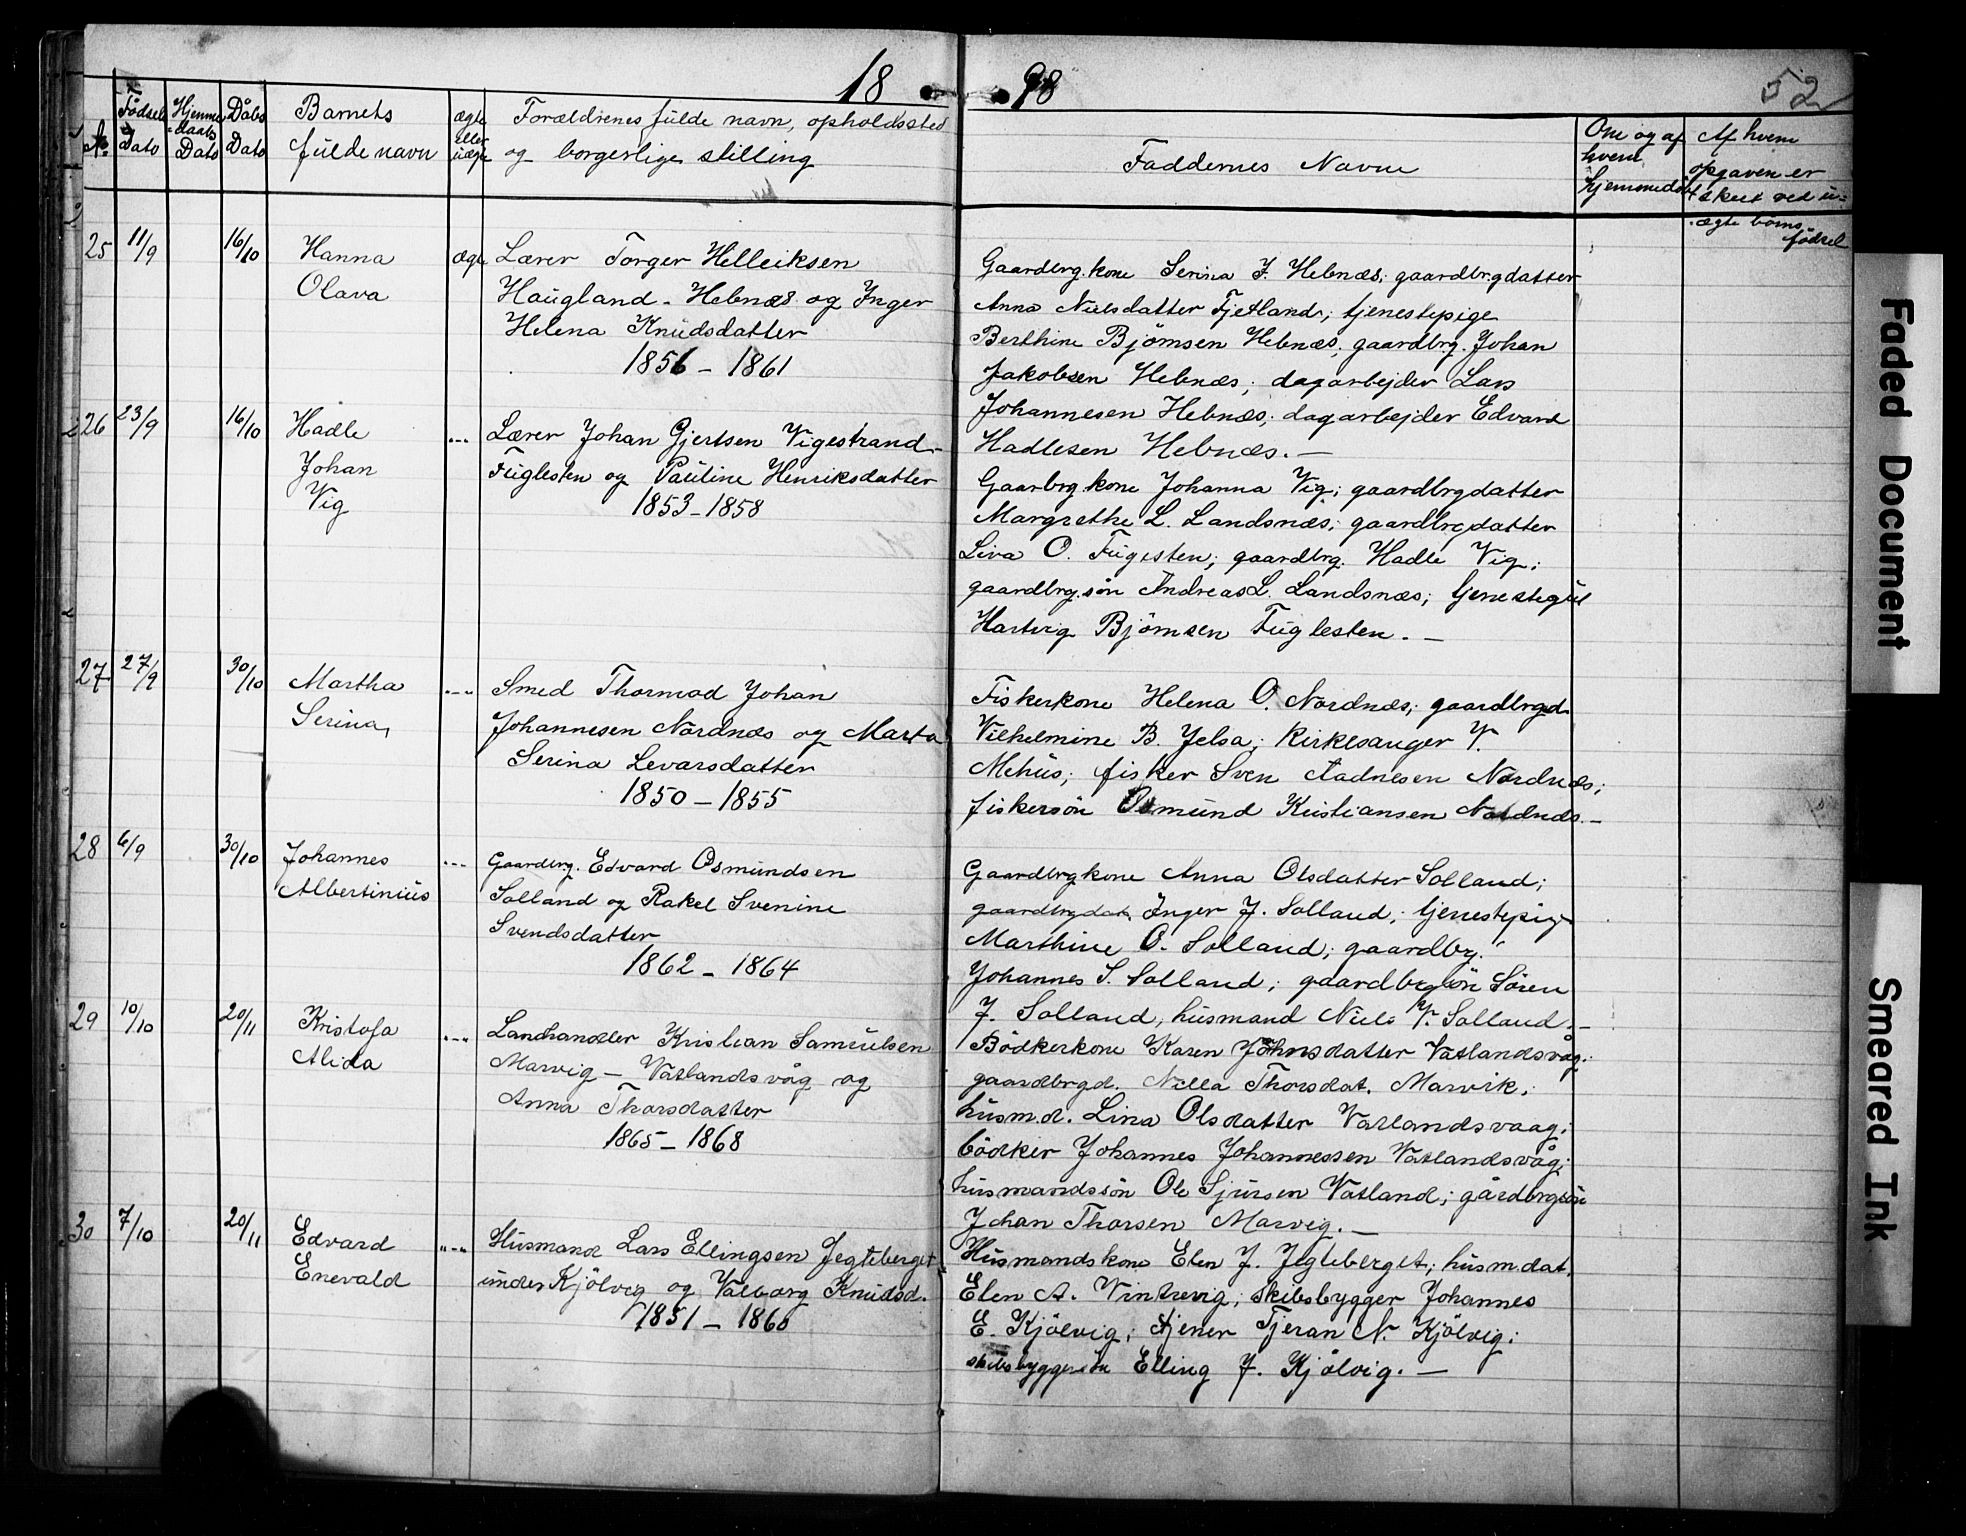 18 98
52
№
Födsels Dato
Hjemme-daabs Dato
Dåbs Dato
Barnets fulde navn
ægte eller uægte
Forældrenes fulde navn, opholdssted
og borgerlige stilling
Faddernes Navne
Om og af hvem hjemmedöbt
Af hvem opgaven er skeet ved u-ægte börns födsel
25 11/9 16/10 Hanna Olava ægte
Lærer Torger Helleiksen
Haugland - Hebnæs og Inger
Helena Knudsdatter
1856 - 1861
Gaardbrg.kone Serina J. Hebnæs; gaardbrgdatter
Anna Nielsdatter Fjetland; tjenestepige
Berthine Björnsen Hebnæs; gaardbrg. Johan
Jakobsen Hebnæs; dagarbejder Lars
Johannesen Hebnæs; dagarbejder Edvard
Hadlesen Hebnæs. —
26 23/9 16/10 Hadle Johan Vig -"-
Lærer Johan Gjertsen Vigestrand -
Fuglesten og Pauline Henriksdatter
1853 - 1858
Gaarbrg.kone Johanna Vig; gaardbrgdatter
Margrethe L. Landsnæs; gaardbrgdatter
Liva O. Fugesten; gaardbrg. Hadle Vig;
gaardbrg.sön Andreas L. Landsnæs; tjenestegut
Hartvig Björnsen Fuglesten. —
27 27/9 30/10 Martha Serina -"-
Smed Thormod Johan
Johannesen Nordnæs og Marta
Serina Levarsdatter
1850 - 1855
Fiskerkone Helena O. Nordnæs; gaardbrgd.
Vilhelmine B. Jelsa; Kirkesanger V.
Mehus; fisker Sven Aadnesen Nordnæs;
fiskersön Osmund Kristiansen Nordnæs. —
28 6/9 30/10 Johannes Albertinius -"-
Gaardbrg. Edvard Osmundsen
Solland og Rakel Svenine
Svendsdatter
1862 - 1864
Gaardbrgkone Anna Olsdatter Solland;
gaardbrgdat. Inger J. Solland; tjenestepige
Marthine O. Solland; gaardbg.
Johannes S. Solland; gaardbrgsön Sören
J. Solland; husmand Niels V. Solland. —
29 10/10 20/11 Kristofa Alida -"-
Landhandler Kristian Samuelsen
Marvig — Vatlandsvåg og
Anna Thorsdatter
1865 - 1868
Bödkerkone Karen Johnsdatter Vatlandsvåg;
gaardbrgd. Nella Thorsdat. Marvik;
husm.d. Lina Olsdatter Vatlandsvaag;
bödker Johannes Johannessen Vatlandsvåg;
husmandssön Ole Sjursen Vatland; gårdbrgsön
Johan Thorsen Marvig. —
30 7/10 20/11 Edvard Enevald -"-
Husmand Lars Ellingsen Jegteberget
under Kjölvig og Valborg Knudsd.
1851 - 1860
Husmandskone Elen J. Jegteberget; husm.dat.
Elen A. Vintrevig; skibsbygger Johannes
E. Kjölvig; tjener Tjeran N. Kjölvig;
skibsbyggersön Elling J. Kjölvig. —
Faded Document
Smeared Ink